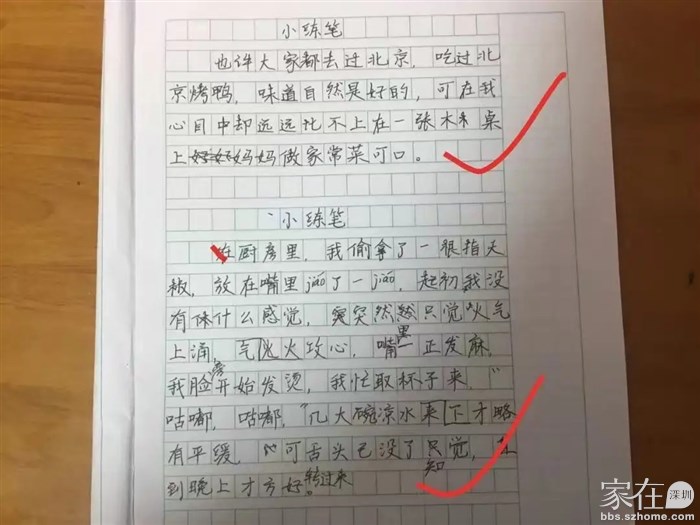 小练笔
也许大家都去过北京，吃过北
京烤鸭，味道自然是好的，可在我
心目中却远远比不上在一张木桌
上妈妈做家常菜可口。
小练笔
在厨房里，我偷拿了一根指天
椒，放在嘴里jiáo了一jiáo，起初我没
有体什么感觉，突然只觉火气
上涌，气火攻心，嘴里一正发麻，
我脸旁开始发烫，我忙取杯子来，“
咕嘟，咕嘟，”几大碗凉水来下才略
有平缓，可舌头已没了知觉，
到晚上才方好转过来。
家在深圳
bbs.szhome.com